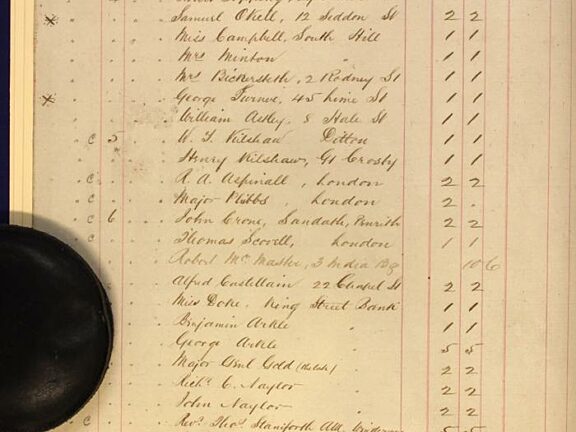 Samuel Okell, 12 Seddon St 2 2
Miss Campbell, South Hill 1 1
Mrs Minton " 1 1
Mrs Bickersteth, 2 Rodney St 1 1
George Turner, 45 Lime St 1 1
William Astley, 8 Hale St 1 1
C 5 W. J. Kilshaw Ditton 1 1
Henry Kilshaw, Gt Crosby 1 1
C R. A. Aspinall, London 2 2
C Major Phibbs, London 2 .
C 6 John Crone, Sandath, Penrith 2 2
C Thomas Scovell, London 1 1
Robert McMaster, 3 India Bg 10 6
Alfred Castellain 22 Chapel St 2 2
Miss Doke, King Street Bank 1 1
Benjamin Arkle " 1 1
George Arkle " 5 5
Major Genl Godd 2 2
Richd C. Naylor 2 2
John Naylor 2 2
C Revd Thos Staniforth 5 5